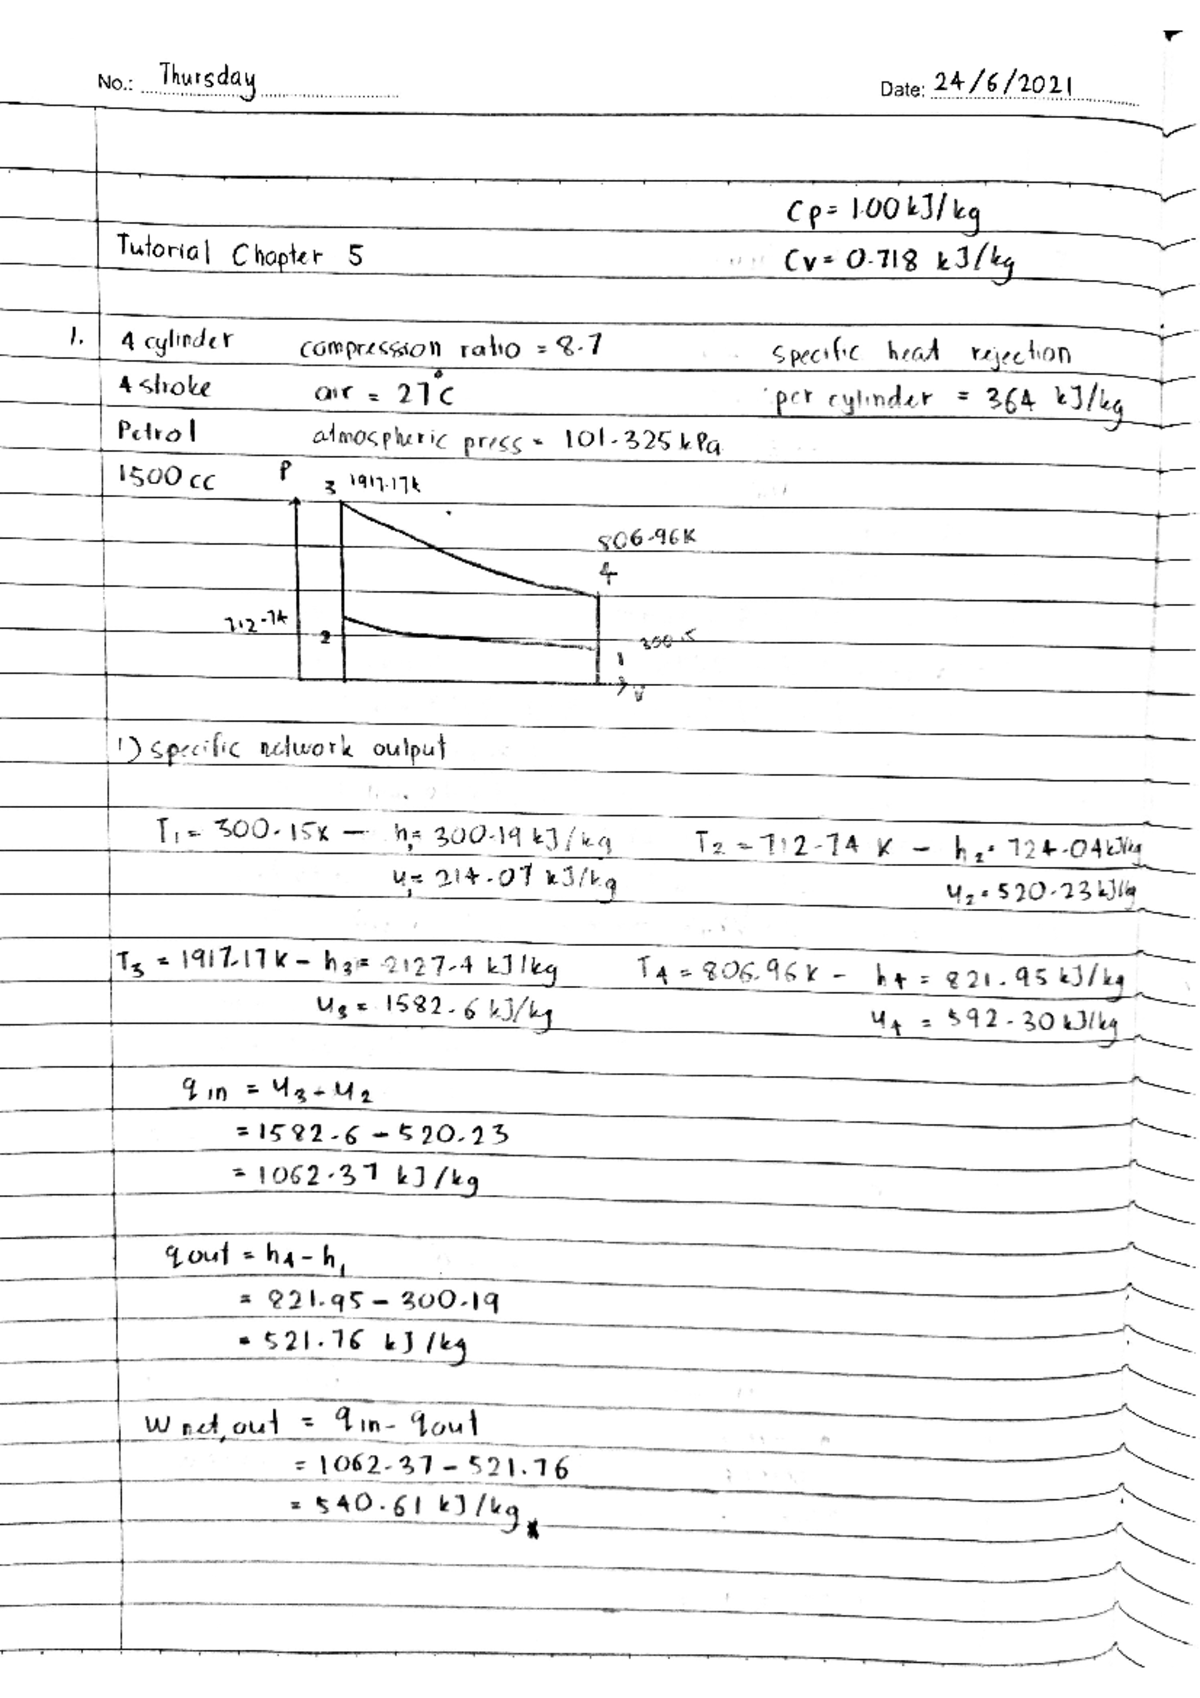 No.: Thursday Date: 24/6/2021
Cp = 1.00 kJ/kg
Tutorial Chapter 5 Cv = 0.718 kJ/kg
1. 4 cylinder compression ratio = 8.7 specific heat rejection
4 stroke air = 27°C per cylinder = 364 kJ/kg
Petrol atmospheric press = 101.325 kPa
1500 cc P 3 1917.17k
806.96K
4
712.74
2 300.15
1
V
1) specific network output
T1 = 300.15K — h1 = 300.19 kJ/kg T2 = 712.74 K — h2 = 724.04 kJ/kg
u1 = 214.07 kJ/kg u2 = 520.23 kJ/kg
T3 = 1917.17K — h3 = 2127.4 kJ/kg T4 = 806.96K — h4 = 821.95 kJ/kg
u3 = 1582.6 kJ/kg u4 = 592.30 kJ/kg
q in = u3 - u2
= 1582.6 - 520.23
= 1062.37 kJ/kg
q out = h4 - h1
= 821.95 - 300.19
= 521.76 kJ/kg
W net,out = q in - q out
= 1062.37 - 521.76
= 540.61 kJ/kg